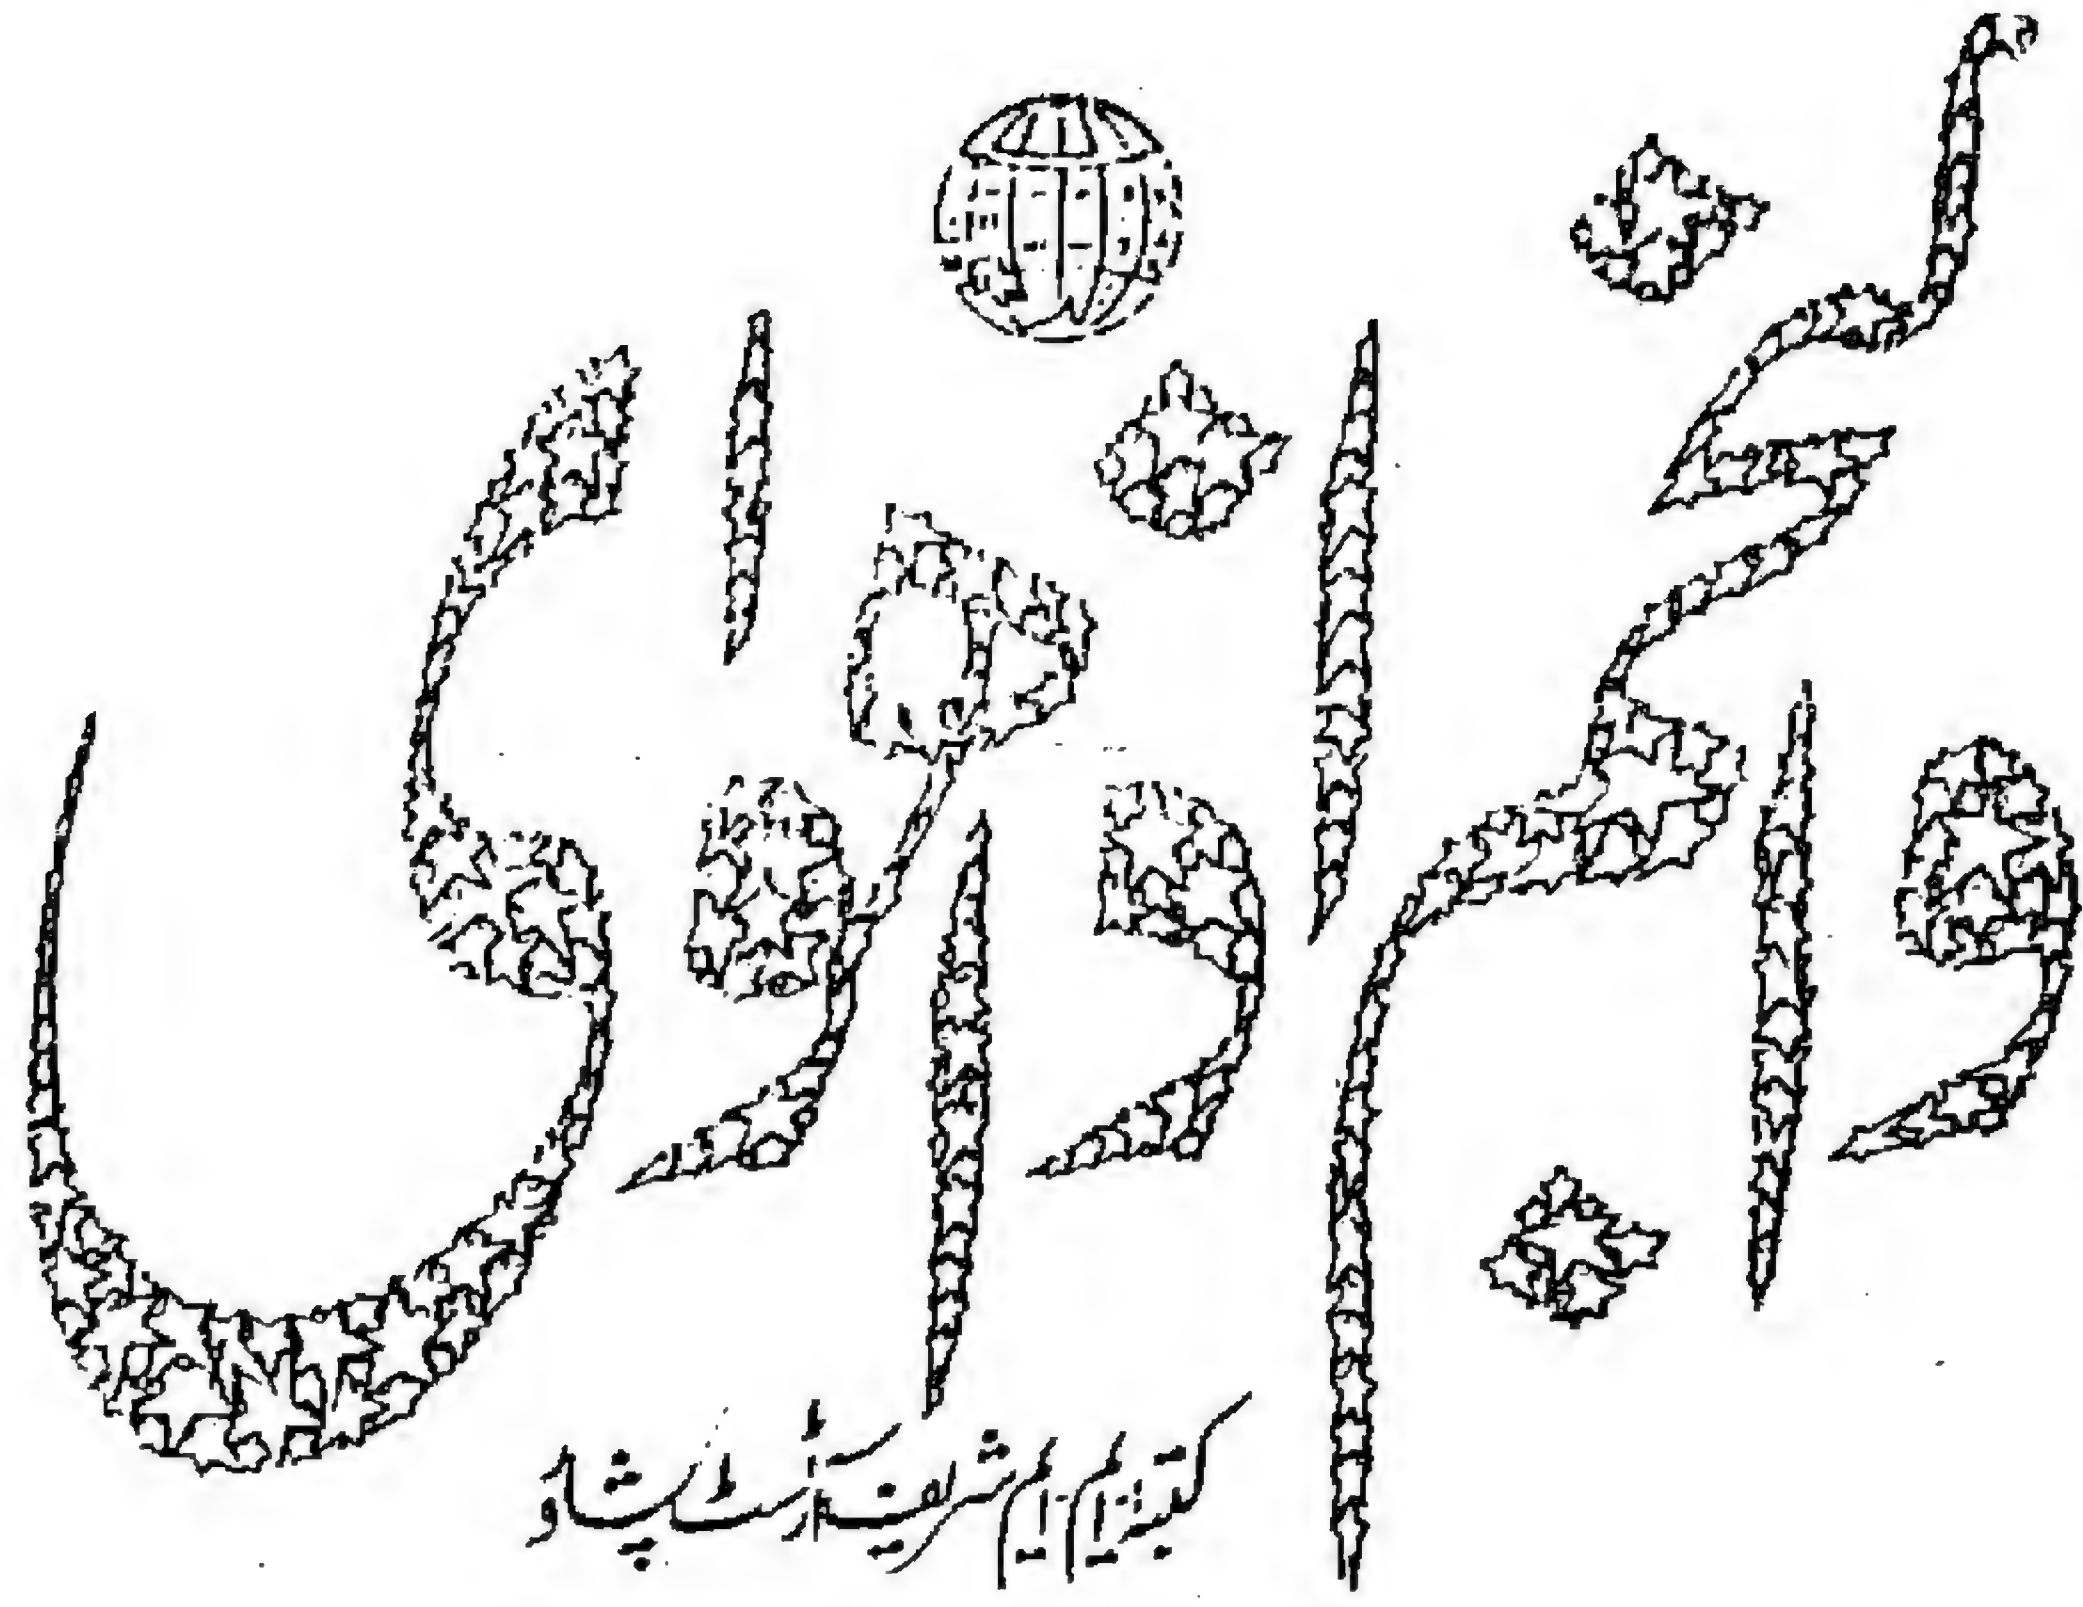 والنجم اذا هوىٰ
کتبہ ایم ایم شریف آرٹسٹ پشاور